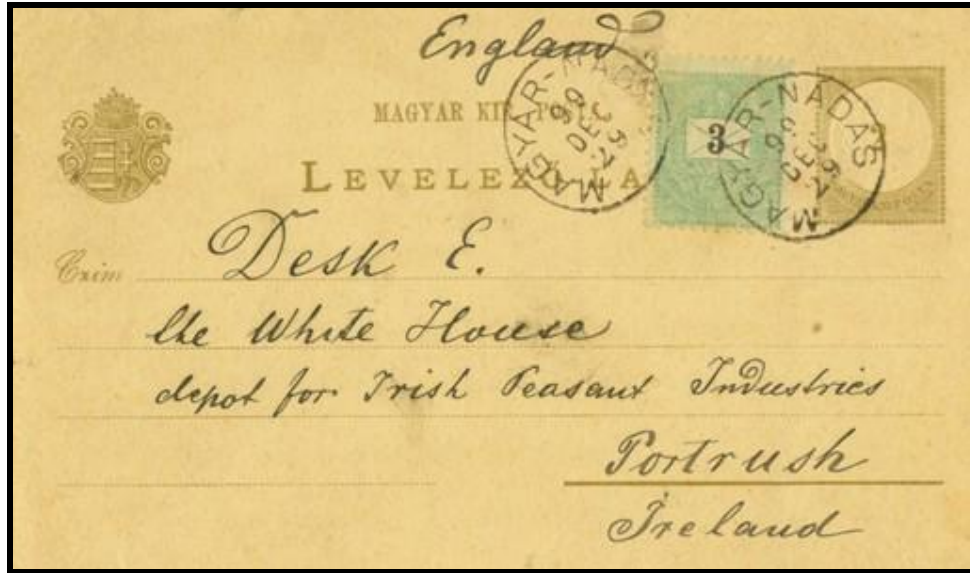 England
MAGYAR KIR. POSTA
LEVELEZŐLAP
3
MAGYAR-NÁDAS
MAGYAR-NÁDAS
Czim
Desk E.
the White House
depot for Irish Peasant Industries
Portrush
Ireland